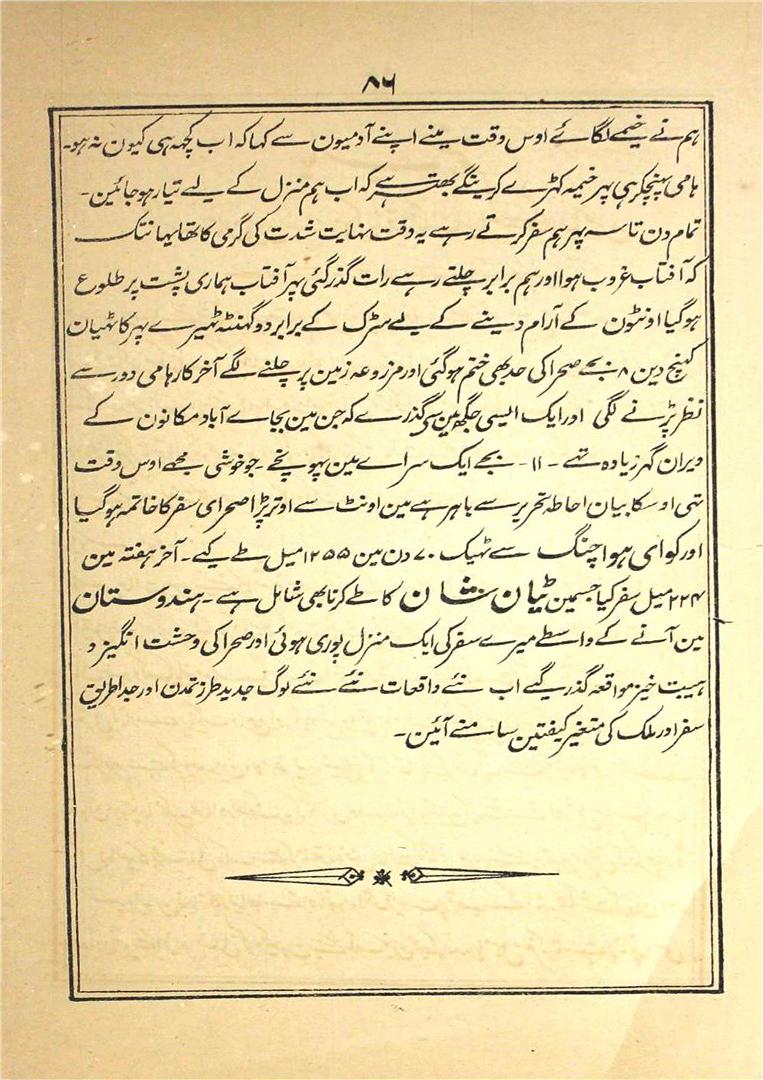 ۸۶
ہم نے خیمے لگائے اوس وقت مینے اپنے آدمیون سے کہا کہ اب کچہہ ہی کیون نہ ہو۔
ہامی پہنچکر ہی پہر خیمہ کہڑے کرینگے بہتر ہے کہ اب ہم منزل کے لیے تیار ہو جائین۔
تمام دن تا سہ پہر ہم سفر کرتے رہے یہ وقت نہایت شدت کی گرمی کا تھا یہانتک
کہ آفتاب غروب ہوا اور ہم برابر چلتے رہے رات گذر گئی پہر آفتاب ہماری پشت پر طلوع
ہو گیا اونٹون کے آرام دینے کے لیے سڑک کے برابر دو گہنٹہ ٹہیرے پہر کاٹہیان
کہنچ دین ۸ بجے صحرا کی حد بھی ختم ہو گئی اور مزروعہ زمین پر چلنے لگے آخر کار ہامی دور سے
نظر پڑنے لگی اور ایک ایسی جگہ مین سے گذرے کہ جن مین بجاے آباد مکانون کے
ویران گہر زیادہ تہے ۔ ۱۱ ۔ بجے ایک سراے مین پہونچے ۔ جو خوشی مجھے اوس وقت
تہی اوسکا بیان احاطہ تحریر سے باہر ہے مین اونٹ سے اوتر پڑا صحرای سفر کا خاتمہ ہو گیا
اور کوای ہوا چنگ سے ٹہیک ۷۰ دن مین ۱۲۵۵ میل طے کیے ۔ آخر ہفتہ مین
۲۲۴ میل سفر کیا جسمین ٹیان شان کا طے کرنا بھی شامل ہے ۔ ہندوستان
مین آنے کے واسطے میرے سفر کی ایک منزل پوری ہوئی اور صحرا کی وحشت انگیز و
ہیبت خیز مواقعہ گذر گیے اب نئے واقعات نئے نئے لوگ جدید طرز تمدن اور جدا طریق
سفر اور ملک کی متغیر کیفتین سامنے آئین۔